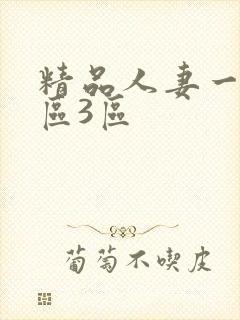 精品人妻一
區3區
葡萄不喫皮